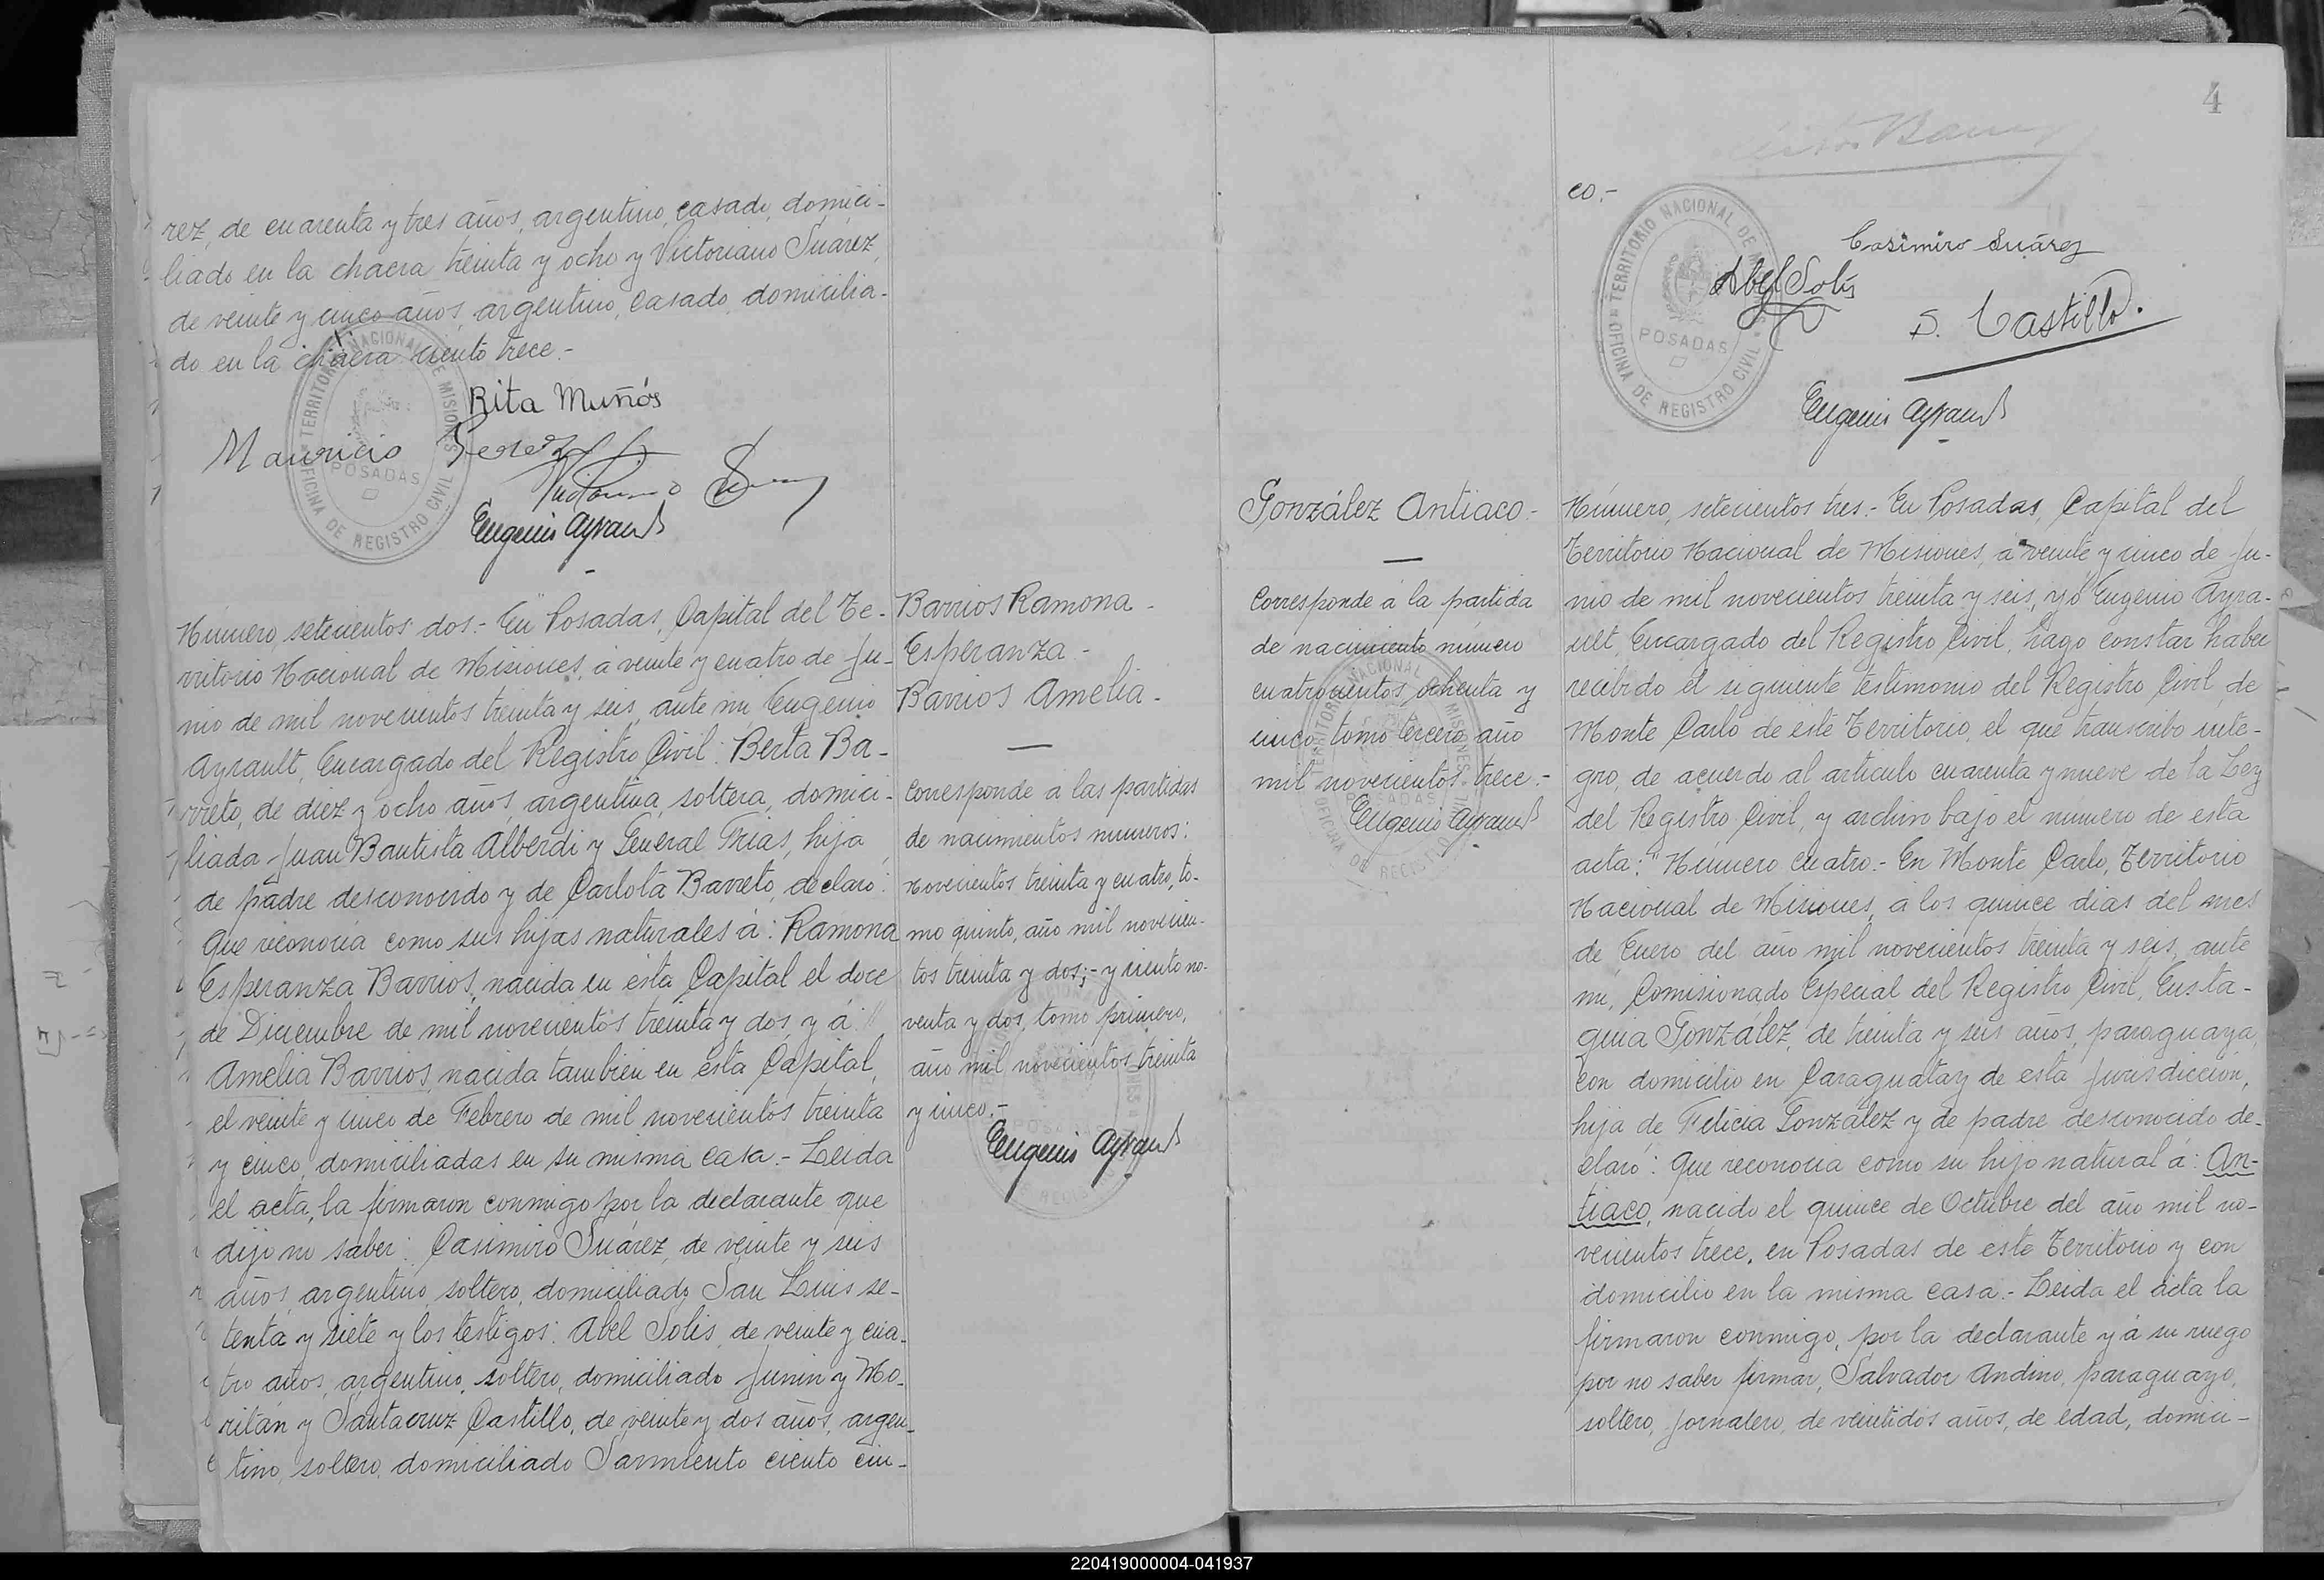 rez, de cuarenta y tres años, argentino, casado, domici-
liado en la chacra treinta y ocho y Victoriano Suárez,
de veinte y cinco años, argentino, casado, domicilia-
do en la chacra ciento trece.-
Rita Muñós
Mauricio Perez
Eugenio Ayrault
TERRITORIO NACIONAL DE MISIONES
POSADAS
OFICINA DE REGISTRO CIVIL
Número, setecientos dos.- En Posadas, Capital del Te-
rritorio Nacional de Misiones, á veinte y cuatro de Ju-
nio de mil novecientos treinta y seis, ante mi, Eugenio
Ayrault, Encargado del Registro Civil: Berta Ba-
rreto, de diez y ocho años, argentina, soltera, domici-
liada Juan Bautista Alberdi y General Frias, hija
de padre desconocido y de Carlota Barreto, declaró:
Que reconocía como sus hijas naturales á: Ramona
Esperanza Barrios, nacida en esta Capital el doce
de Diciembre de mil novecientos treinta y dos, y á
Amelia Barrios, nacida también en esta Capital,
el veinte y cinco de Febrero de mil novecientos treinta
y cinco, domiciliadas en su misma casa.- Leida
el acta, la firmaron conmigo por la declarante que
dijo no saber: Casimiro Suárez, de veinte y seis
años, argentino, soltero, domiciliado San Luis se-
tenta y siete y los testigos: Abel Solis, de veinte y cua-
tro años, argentino, soltero, domiciliado Junin y Mo-
ritán y Santacruz Castillo, de veinte y dos años, argen-
tino, soltero, domiciliado Sarmiento ciento cin-
Barrios Ramona
Esperanza -
Barrios Amelia -
Corresponde á las partidas
de nacimientos numeros:
novecientos treinta y cuatro, to-
mo quinto, año mil novecien-
tos treinta y dos;- y ciento no-
venta y dos, tomo primero,
año mil novecientos treinta
y cinco.-
Eugenio Ayrault
4
co.-
Casimiro Suárez
Abel Solis
S. Castillo.
Eugenio Ayrault
TERRITORIO NACIONAL DE MISIONES
POSADAS
OFICINA DE REGISTRO CIVIL
González Antiaco.-
Corresponde á la partida
de nacimiento número
cuatrocientos ochenta y
cinco tomo tercero año
mil novecientos trece.-
Eugenio Ayrault
Número, setecientos tres.- En Posadas, Capital del
Territorio Nacional de Misiones, á veinte y cinco de Ju-
nio de mil novecientos treinta y seis, yó Eugenio Ayra-
ult, Encargado del Registro Civil, hago constar haber
recibido el siguiente testimonio del Registro Civil, de
Monte Carlo de este Territorio, el que transcribo inte-
gro, de acuerdo al articulo cuarenta y nueve de la Ley
del Registro Civil, y archivo bajo el número de esta
acta: "Número cuatro.- En Monte Carlo, Territorio
Nacional de Misiones, á los quince dias del mes
de Enero del año mil novecientos treinta y seis, ante
mi, Comisionado Especial del Registro Civil, Eusta-
quia González, de treinta y seis años, paraguaya,
con domicilio en Caraguatay de esta Jurisdicción,
hija de Felicia González y de padre desconocido de-
claró: Que reconocia como su hijo natural á: An-
tiaco, nacido el quince de Octubre del año mil no-
vecientos trece, en Posadas de este Territorio y con
domicilio en la misma casa.- Leida el acta la
firmaron conmigo, por la declarante y á su ruego
por no saber firmar, Salvador Andino, paraguayo,
soltero, jornalero, de veintidos años, de edad, domici-
220419000004-041937